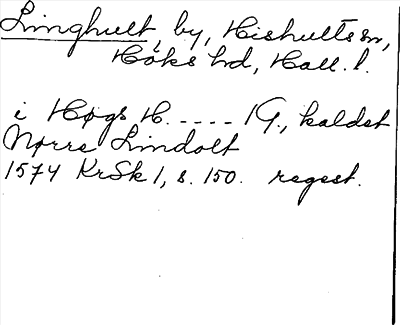 Linghult, by, Hishults sn,
Höks hd, Hall. l.
i Høgs H. ---- 1 G., kaldet
Nørre Lindolt
1574 KrSk 1, s. 150. regest.